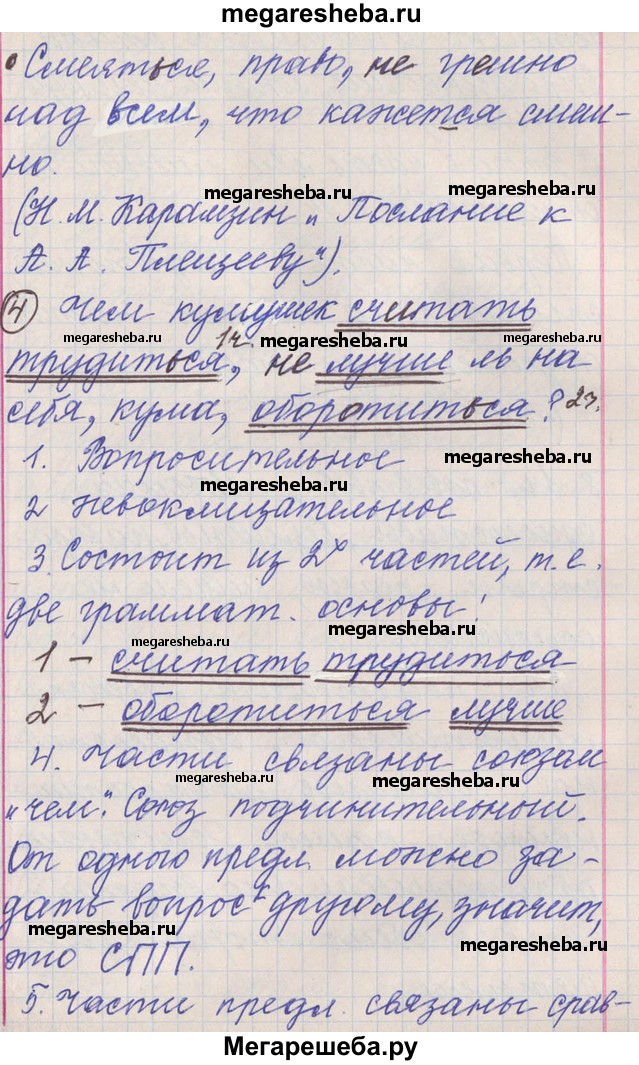 megaresheba.ru
Смеяться, право, не грешно
над всем, что кажется смеш-
но.
megaresheba.ru megaresheba.ru
(Н. М. Карамзин „Послание к
А. А. Плещееву").
④ Чем кумушек считать
megaresheba.ru 1ч. megaresheba.ru
трудиться, не лучше ль на
себя, кума, оборотиться? 2ч.
1. Вопросительное megaresheba.ru
megaresheba.ru
2 Невосклицательное
3. Состоит из 2х частей, т. е.
две граммат. основы!
megaresheba.ru megaresheba.ru
1 – считать трудиться
2 – оборотиться лучше
4. Части связаны союзом
megaresheba.ru megaresheba.ru
„чем". Союз подчинительный.
От одного предл. можно за-
дать вопрос к другому, значит,
megaresheba.ru megaresheba.ru
это СПП.
5. Части предл. связаны срав-
Мегарешеба.ру